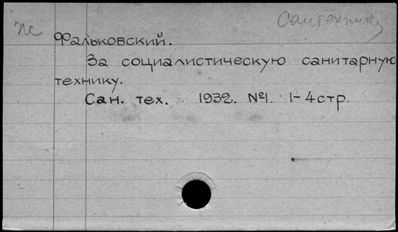 Сантехник
ж
Фальковский.
За социалистическую санитарную
технику.
Сан. тех. 1932. №1. 1-4 стр.